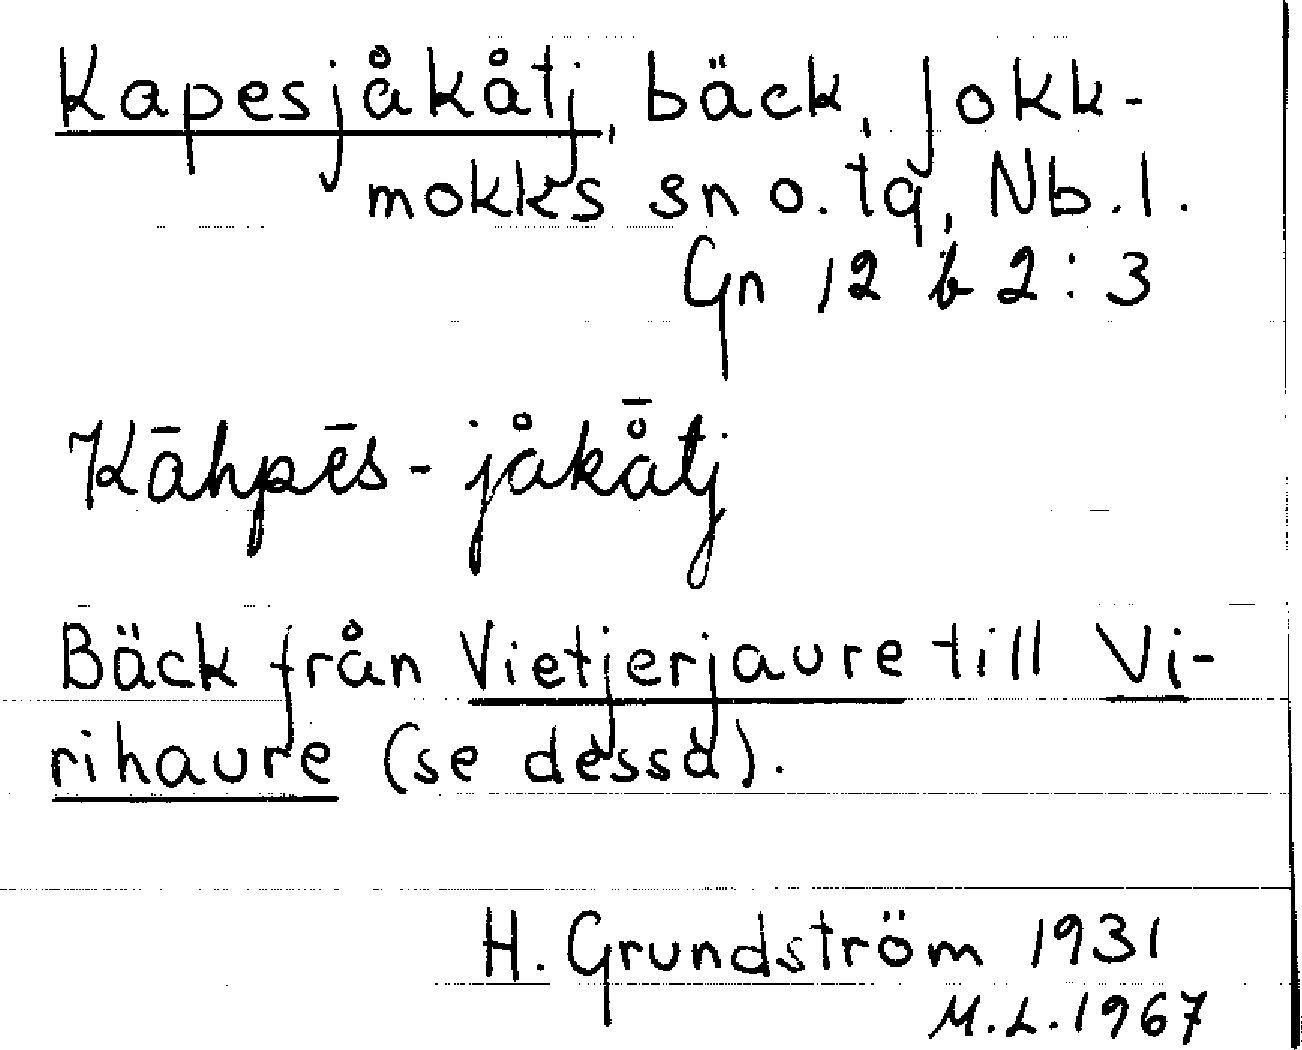 Kapesjåkåtj, bäck, Jokk-
mokks sn o. tg, Nb. l.
Gn 12 b 2:3
Kāhpēs-jåkå̄tj
Bäck från Vietjerjaure till Vi-
rihaure (se dessa).
H. Grundström 1931
M.L. 1967